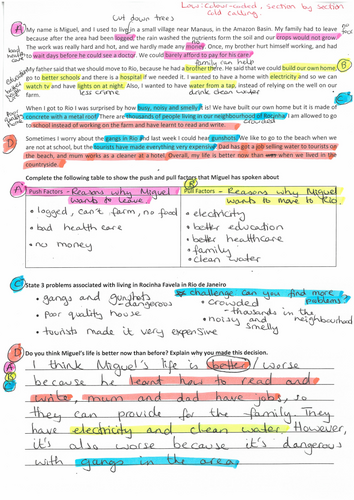 Low: Colour-coded, section by section
cold calling.
cut down trees
A
My name is Miguel, and I used to live in a small village near Manaus, in the Amazon Basin. My family had to leave
because after the area had been logged the rain washed the nutrients form the soil and our crops would not grow.
no food
The work was really hard and hot, and we hardly made any money. Once, my brother hurt himself working, and had
to wait days before he could see a doctor. We could barely afford to pay for his care?
bad health care
family can help
B
My father said that we should move to Rio, because he had a brother there. He said that we could build our own home,
go to better schools and there is a hospital if we needed it. I wanted to have a home with electricity and so we can
watch tv and have lights on at night. Also, I wanted to have water from a tap, instead of relying on the well on our
farm.
less crime
drink clean water
C
When I got to Rio I was surprised by how busy, noisy and smelly it is! We have built our own home but it is made of
concrete with a metal roof! There are thousands of people living in our neighbourhood of Rocinha! I am allowed to go
to school instead of working on the farm and have learnt to read and write.
crowded
D
Sometimes I worry about the gangs in Rio and last week I could hear gunshots! We like to go to the beach when we
are not at school, but the tourists have made everything very expensive! Dad has got a job selling water to tourists on
the beach, and mum works as a cleaner at a hotel. Overall, my life is better now than when we lived in the
countryside.
Complete the following table to show the push and pull factors that Miguel has spoken about
A
B
Push Factors - Reasons why Miguel wants to leave
Pull Factors - Reasons why Miguel wants to move to Rio
• logged, can't farm, no food
• bad health care
• no money
• electricity
• better education
• better healthcare
• family
• clean water
C
State 3 problems associated with living in Rocinha Favela in Rio de Janeiro
challenge can you find more problems
• gangs and gunshots
- dangerous
• Poor quality house
• tourists made it very expensive
• crowded
- thousands in the neighbourhood
• noisy and smelly
D
Do you think Miguel's life is better now than before? Explain why you made this decision.
A
B
C
D
I think Miguel's life is better / worse
because he learnt how to read and
write, mum and dad have jobs, so
they can provide for the family. They
have electricity and clean water. However,
it's also worse because it's dangerous
with gangs in the area.